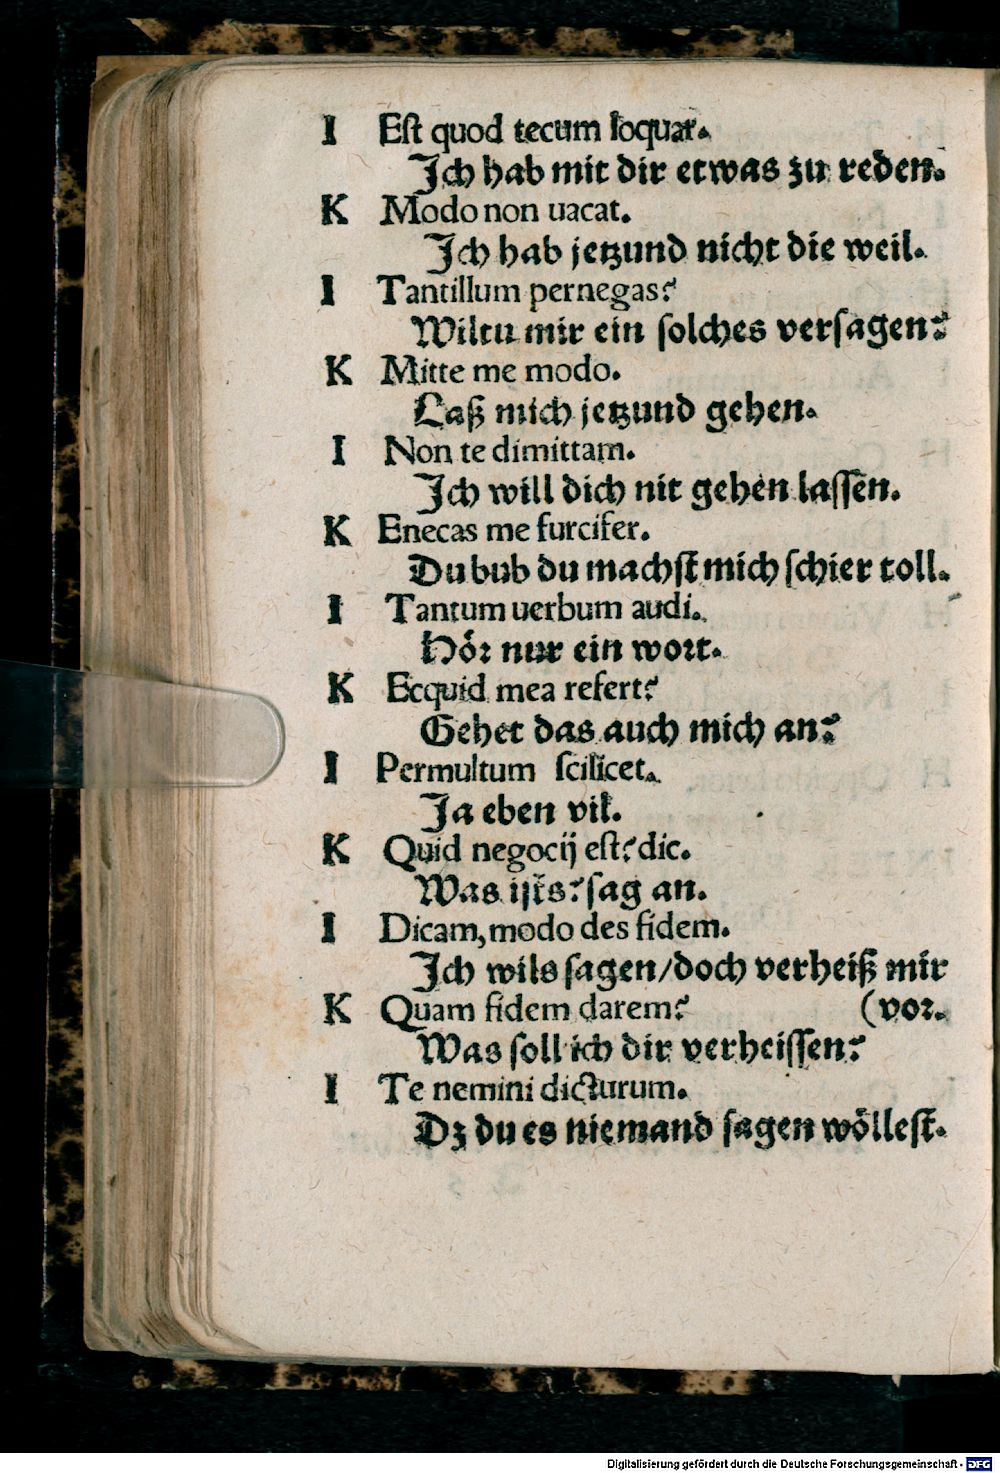 I Est quod tecum loquar.
Ich hab mit dir etwas zu reden.
K Modo non uacat.
Ich hab jetzund nicht die weil.
I Tantillum pernegas?
Wiltu mir ein solches versagen?
K Mitte me modo.
Laß mich jetzund gehen.
I Non te dimittam.
Ich will dich nit gehen lassen.
K Enecas me furcifer.
Du bub du machst mich schier toll.
I Tantum uerbum audi.
Hoͤr nur ein wort.
K Ecquid mea refert?
Gehet das auch mich an?
I Permultum scilicet.
Ja eben vil.
K Quid negocij est? dic.
Was ists? sag an.
I Dicam, modo des fidem.
Ich wils sagen/doch verheiß mir
K Quam fidem darem? (vor.
Was soll ich dir verheissen?
I Te nemini dicturum.
Dz du es niemand sagen woͤllest.
Digitalisierung gefördert durch die Deutsche Forschungsgemeinschaft - DFG